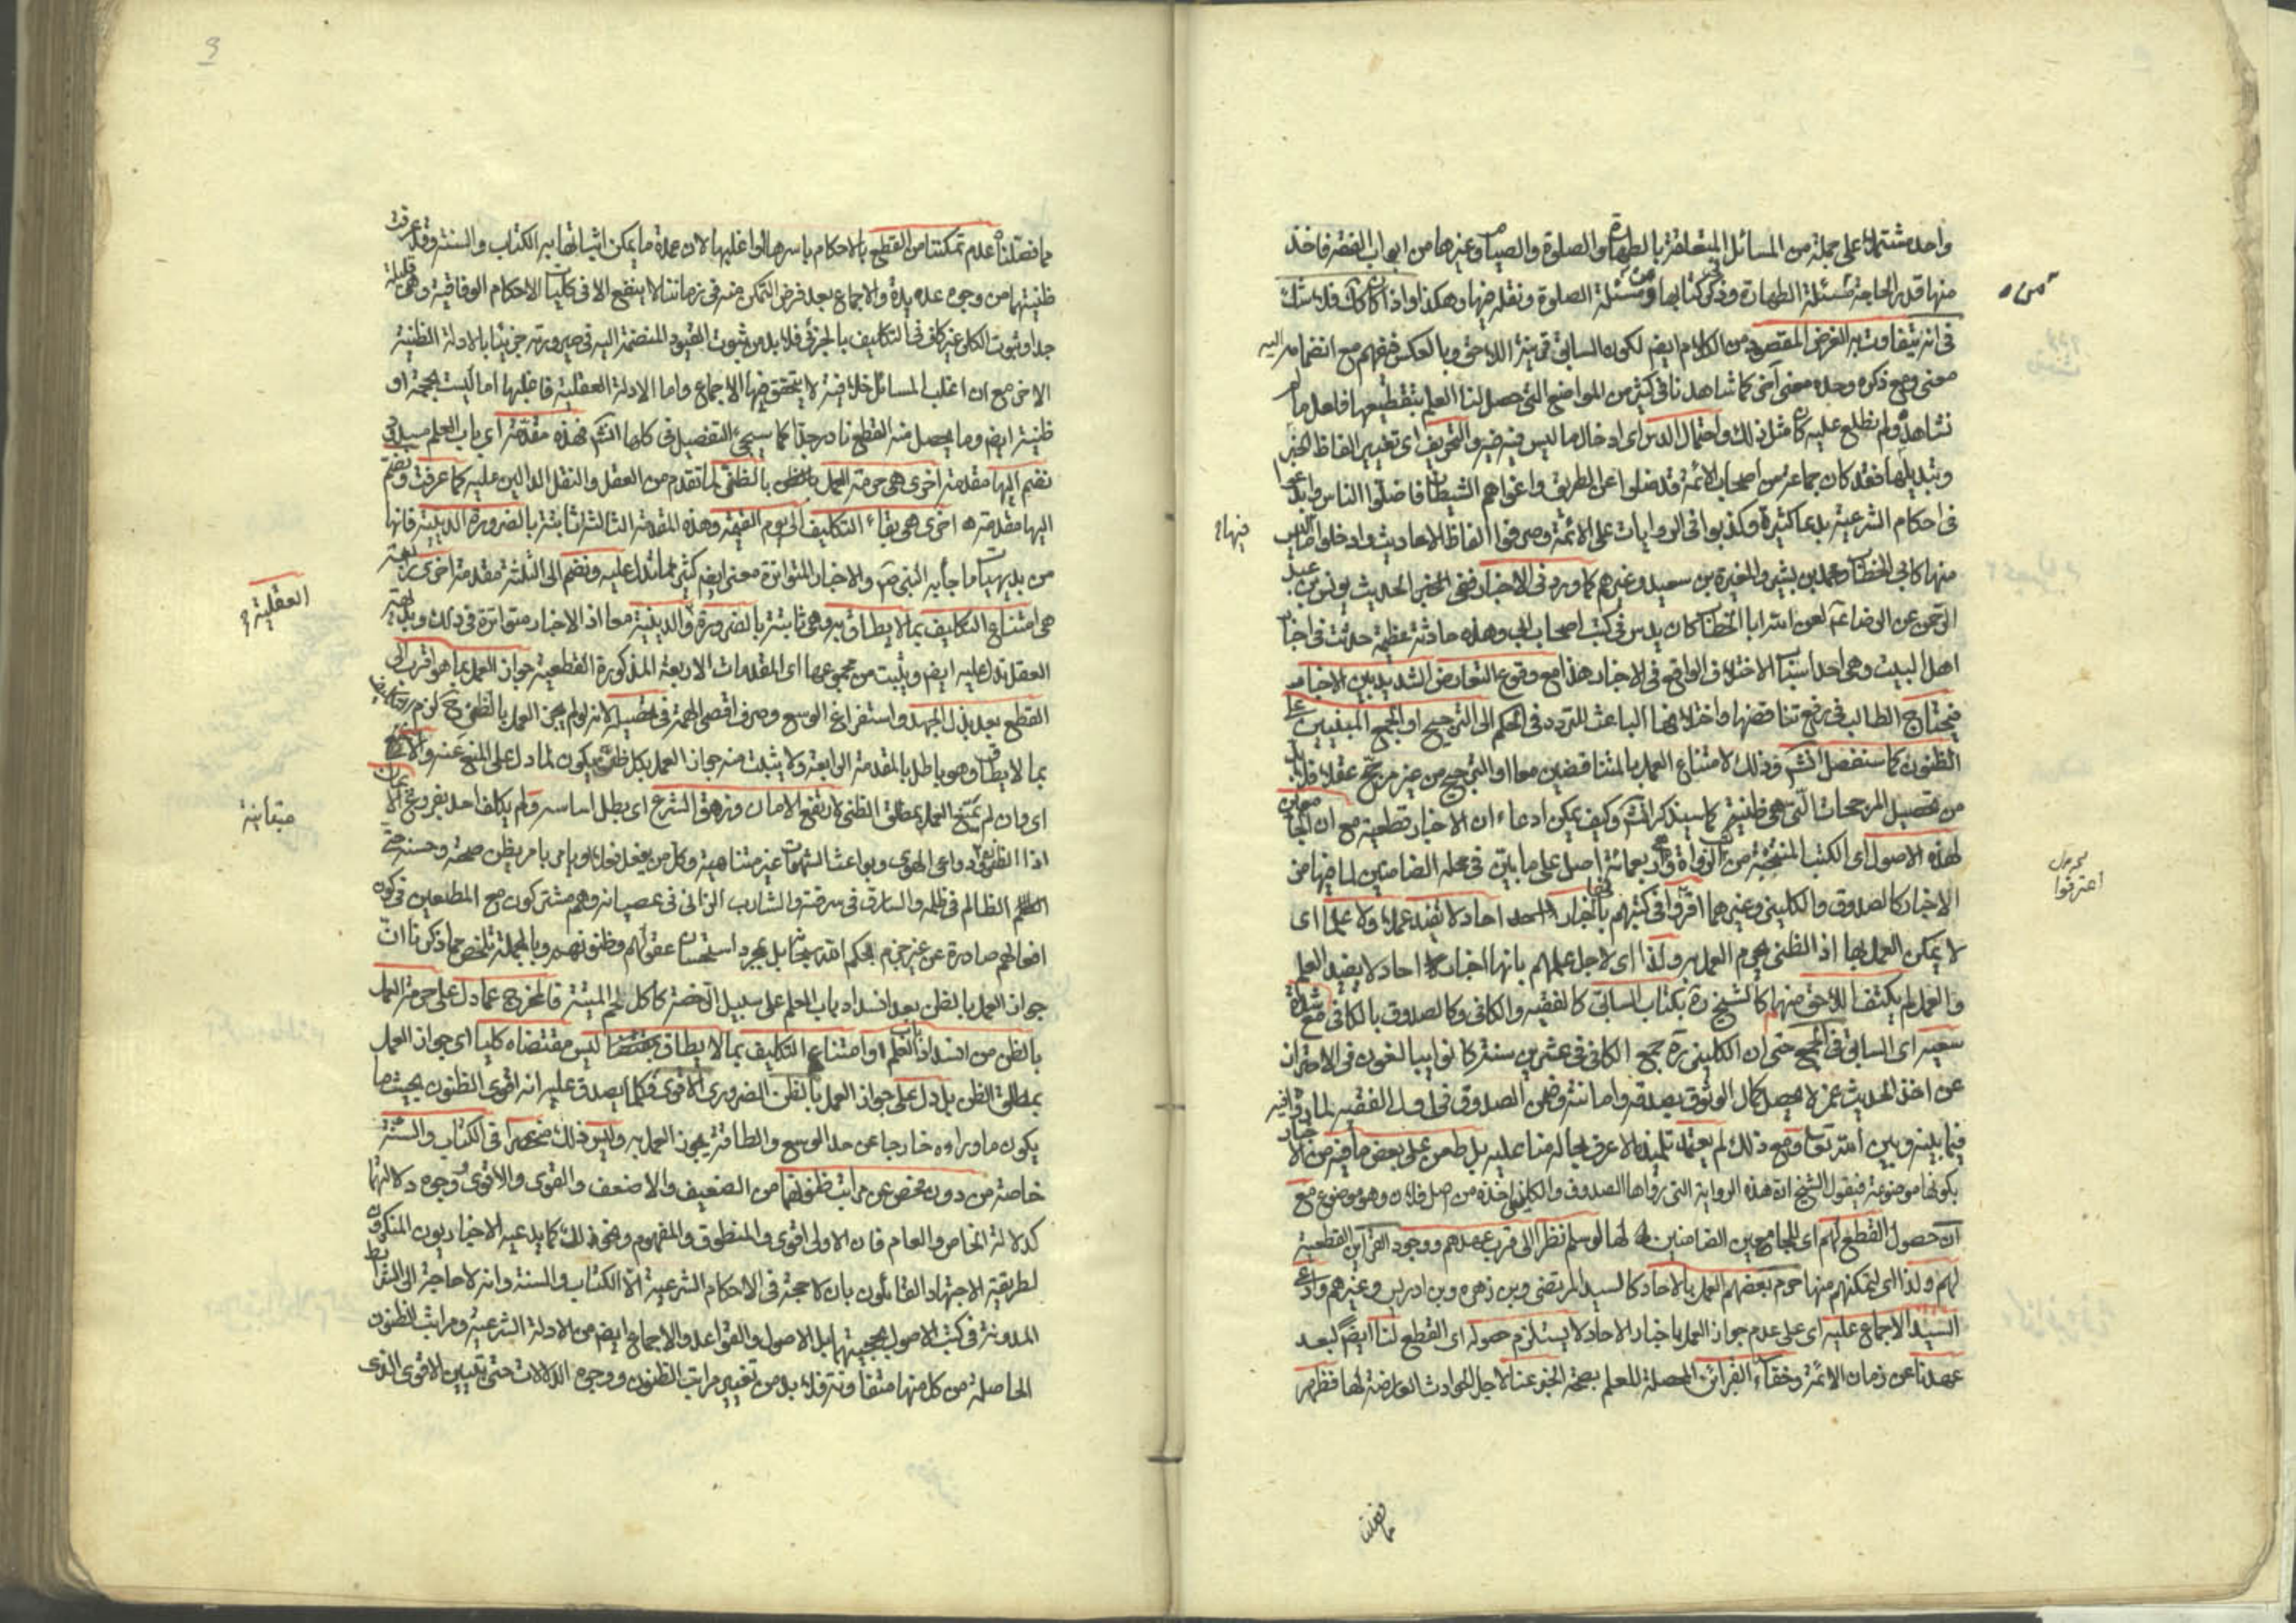 واحد مشتملة على جملة من المسائل المتعلقة بالطهارة والصلوة والصيام وغيرها من ابواب الفقه فاخذ
منها قدر الحاجة كمسئلة الطهارة وذكر في كتابها ومن مسئلة الصلوة ونقله فيها وهكذا واذا كان كذلك فلا شك
في انه يتفاوت به الغرض المقصود من الكلام ايضم لكون السابق قرينة اللاحق وبالعكس فيفهم مع انضمامه اليه
معنى ومع ذكره وحده معنى آخر كما شاهدنا في كثير من المواضع التي حصل لنا العلم بتقطيعها فلعل ما لم
نشاهده ولم نطلع عليه كان مثل ذلك واحتمال الدس اى ادخال ما ليس فيه فيه والتحريف اى تغيير الفاظ الخبر
وتبديلها فقد كان جماعة من اصحاب الائمة قد ضلوا عن الطريق واغواهم الشيطان فاضلوا الناس وابدعوا
في احكام الشرعية بدعا كثيرة وكذبوا في الروايات على الائمة وصرفوا الفاظ الاحاديث وادخلوا ما ليس
منها كابي الخطاب ومحمد بن بشير والمغيرة بن سعيد وغيرهم كما ورد في الاخبار ففى الخبر الحديث يونس بن عبد
الرحمن عن الرضا عم لعن الله ابا الخطاب كان يدس في كتب اصحاب ابي وهذه حادثة عظيمة حدثت في اخبار
اهل البيت وهي احد اسباب الاختلاف الواقع في الاخبار هذا مع وقوع التعارض الشديد بين الاخبار
فيحتاج الطالب في رفع تناقضها واختلافها الباعث للتردد في الحكم الى الترجيح او الجمع المبنيين على
الظنون كما سنفصل انشم وذلك لامتناع العمل بالمتناقضين معا او الترجيح من غير مرجح عقلا فلابد
من تحصيل المرجحات التي هي ظنية كما سيذكر انشم وكيف يمكن ادعاء ان الاخبار قطعية مع ان الجامعين
لهذه الاصول اى الكتب المنتخبة من كتب الرواة وهى اربعمائة اصل على ما بين في محله الضامنين لما فيها من
الاخبار كالصدوق والكليني وغيرهما اقروا في كتبهم بانها اخبار احاد لا تفيد عملا ولا علما اى
لا يمكن العمل بها اذ الظنى يحرم العمل به ولذا اى لاجل علمهم بانها اخبار احاد لا يفيد العلم
والعمل لم يكتف اللاحق منهم كالشيخ ره بكتاب السابق كالفقيه والكافى وكالصدوق بالكافى مع شدة
سعيه اى السابق في الجمع حتى ان الكلينى ره جمع الكافى في عشرين سنة كانوا يبالغون في الاحتراز
عن اخذ الحديث عمن لا يحصل كمال الوثوق بصدقه وامانته وضمن الصدوق في اول الفقيه لما رواه فيه
فيما بينه وبين الله تعالى ومع ذلك لم يعتمد تلميذه الاعرف بحاله منا عليه بل طعن على بعض ما فيه من الاخبار
بكونها موضوعة فيقول الشيخ ان هذه الرواية التي رواها الصدوق والكلينى اخذه من اصل فلان وهو موضوع مع
ان حصول القطع لهم اى للجامعين الضامنين لها لو سلم نظرا الى قرب عهدهم ووجود القرائن القطعية
لهم ولذا اى لتمكنهم منها حرم بعضهم العمل بالاحاد كالسيد المرتضى وبن زهره وبن ادريس وغيرهم وادعى
السيد الاجماع عليه اى على عدم جواز العمل باخبار الاحاد لا يستلزم حصوله اى القطع لنا ايضم لبعد
عهدنا عن زمان الائمة وخفاء القرائن المحصلة للعلم بصحة الخبر عنا لاجل الحوادث العارضة لها فظهر
من
فيها
اعترفوا
مما فصلنا
مما فصلناه عدم تمكننا من القطع بالاحكام باسرها او اغلبها لان عمدة ما يمكن اثباتها به الكتاب والسنة وقد عرفت
ظنيتهما من وجوه عديدة والاجماع بعد فرض التمكن منه في زماننا لا ينفع الا في كليات الاحكام الوفاقية وهي قليلة
جدا وثبوت الكلى غير كاف في التكاليف بالجزئى فلابد من ثبوت القيود المنضمة اليه في صيرورته جزئيا بالادلة الظنية
الاخر مع ان اغلب المسائل خلافية لا يتحقق فيها الاجماع واما الادلة العقلية فاغلبها اما ليست بحجة او
ظنية ايضم وما يحصل منه القطع نادر جدا كما سيجىء التفصيل في كلها انشم فهذه مقدمة اى باب العلم مسدود
نضم اليها مقدمة اخرى هي حرمة العمل بالظنى لما تقدم من العقل والنقل الدالين عليه كما عرفت ونضم
اليها مقدمة اخرى هي بقاء التكاليف الى يوم القيمة وهذه المقدمة الثالثة ثابتة بالضرورة الدينية فانها
من بديهيات ما جاء به النبى ص والاخبار المتواترة معنى ايضم كثيرا ما تدل عليه ونضم الى الثلثة مقدمة اخرى رابعة
هى امتناع التكاليف بما لا يطاق وهى ثابتة بالضرورة والدينية معا اذ الاخبار متواترة في ذلك وبديهة
العقل تدل عليه ايضم ويثبت من مجموعها اى المقدمات الاربعة المذكورة القطعية جواز العمل بما هو اقرب الى
القطع بعد بذل الجهد واستفراغ الوسع وصرف اقصى الهمة في تحصيله لانه لو لم يجز العمل بالظن ح لزم التكليف
بما لا يطاق وهو باطل بالمقدمة الرابعة ولا يثبت منه جواز العمل بكل ظن يكون لما دل على المنع عنه والا
اى وان لم يمتنع العمل بمطلق الظنى لارتفع الامان وزهق الشرع اى بطل اساسه ولم يكلف احد بفروع الايمان
اذا الظنون ودواعى الهوى وبواعث الشهوات غير متناهية وكل من يفعل فعلا او يامر بامر يظن صحته وحسنه حتى
الظالم في ظلمه والسارق في سرقته والشارب الزانى في عصيانه وهم مشتركون مع المطيعين في كون
افعالهم صادرة عن غير جزم بحكم الله سبحانه بل بمجرد استحسان عقولهم وظنونهم وبالجملة تلخص مما ذكرنا ان
جواز العمل بالظن بعد انسداد باب العلم على سبيل الرخصة كاكل لحم الميتة فالمخرج عما دل على حرمة العمل
بالظن من انسداد باب العلم وامتناع التكليف بما لا يطاق ليس مقتضاه كليا اى جواز العمل
بمطلق الظن بل دل على جواز العمل بالظن الضرورى الاقوى فكلما يصدق عليه انه اقوى الظنون بحيث ما
يكون ماوراءه خارجا عن حد الوسع والطاقة يجوز العمل به وليس ذلك منحصرا في الكتاب والسنة
خاصة من دون فحص عن مراتب ظنونهما من الضعيف والاضعف والقوى والاقوى ووجوه دلالتهما
كدلالة الخاص والعام فان الاولى اقوى والمنطوق والمفهوم ونحو ذلك كما يدعيه الاخباريون المنكرون
لطريقة الاجتهاد القائلون بان لا حجة في الاحكام الشرعية الا الكتاب والسنة وانه لا حاجة الى الشرائط
المدونة في كتب الاصول بحجيتهما بل الاصول والقواعد والاجماع ايضم من الادلة الشرعية ومراتب الظنون
الحاصلة من كل منها متفاوتة فلابد من تمييز مراتب الظنون ووجوه الدلالات حتى تعيين الاقوى الذى
العقلية